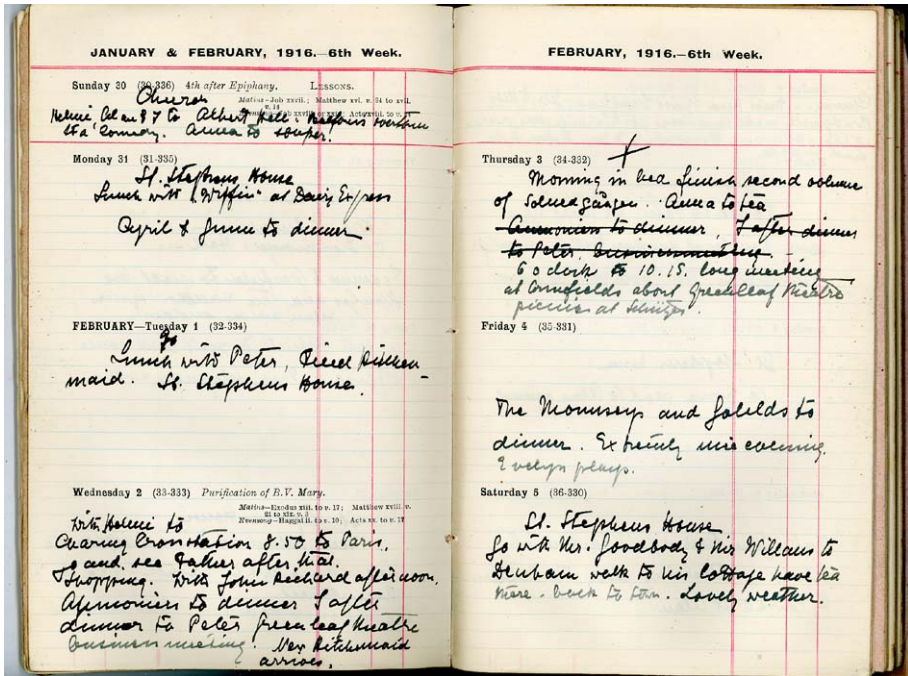 JANUARY & FEBRUARY, 1916.—6th Week.
Sunday 30 (30-336) 4th after Epiphany. LESSONS.
Church
Matins—Job xxvii.; Matthew xvi. v. 24 to xvii.
v. 14
to Albert Hall
to a comedy. Anna to souper.
Monday 31 (31-335)
St. Stephens House
Lunch with "Wiffin" at Dairy Express
April & June to dinner.
FEBRUARY—Tuesday 1 (32-334)
go
Lunch with Peter, Kitchen-
maid. St. Stephens House
Wednesday 2 (33-333) Purification of B.V. Mary.
Matins—Exodus xiii. to v. 17; Matthew xviii. v.
21 to xix. v. 3
Evensong—Haggai ii. to v. 10; Acts xx. to v. 17
With Helmi to
Charing Cross station 8.50 to Paris,
go and see Father after that.
Shopping. With John Richard afternoon.
to dinner I after
dinner to Peter Greenleaf theatre
business meeting. New Kitchenmaid
arrives.
FEBRUARY, 1916.—6th Week.
Thursday 3 (34-332)
Morning in bed finish second volume
of Anna to tea
to dinner, I after dinner
to Peter, business meeting.
6 o clock to 10.15. long meeting
at about Greenleaf Theatre
picnic at
Friday 4 (35-331)
The and to
dinner. Extremely nice evening.
Evelyn plays.
Saturday 5 (36-330)
St. Stephens House
Go with Mr. Goodbody & Mr Willans to
Denham walk to his cottage have tea
there. back to town. Lovely weather.